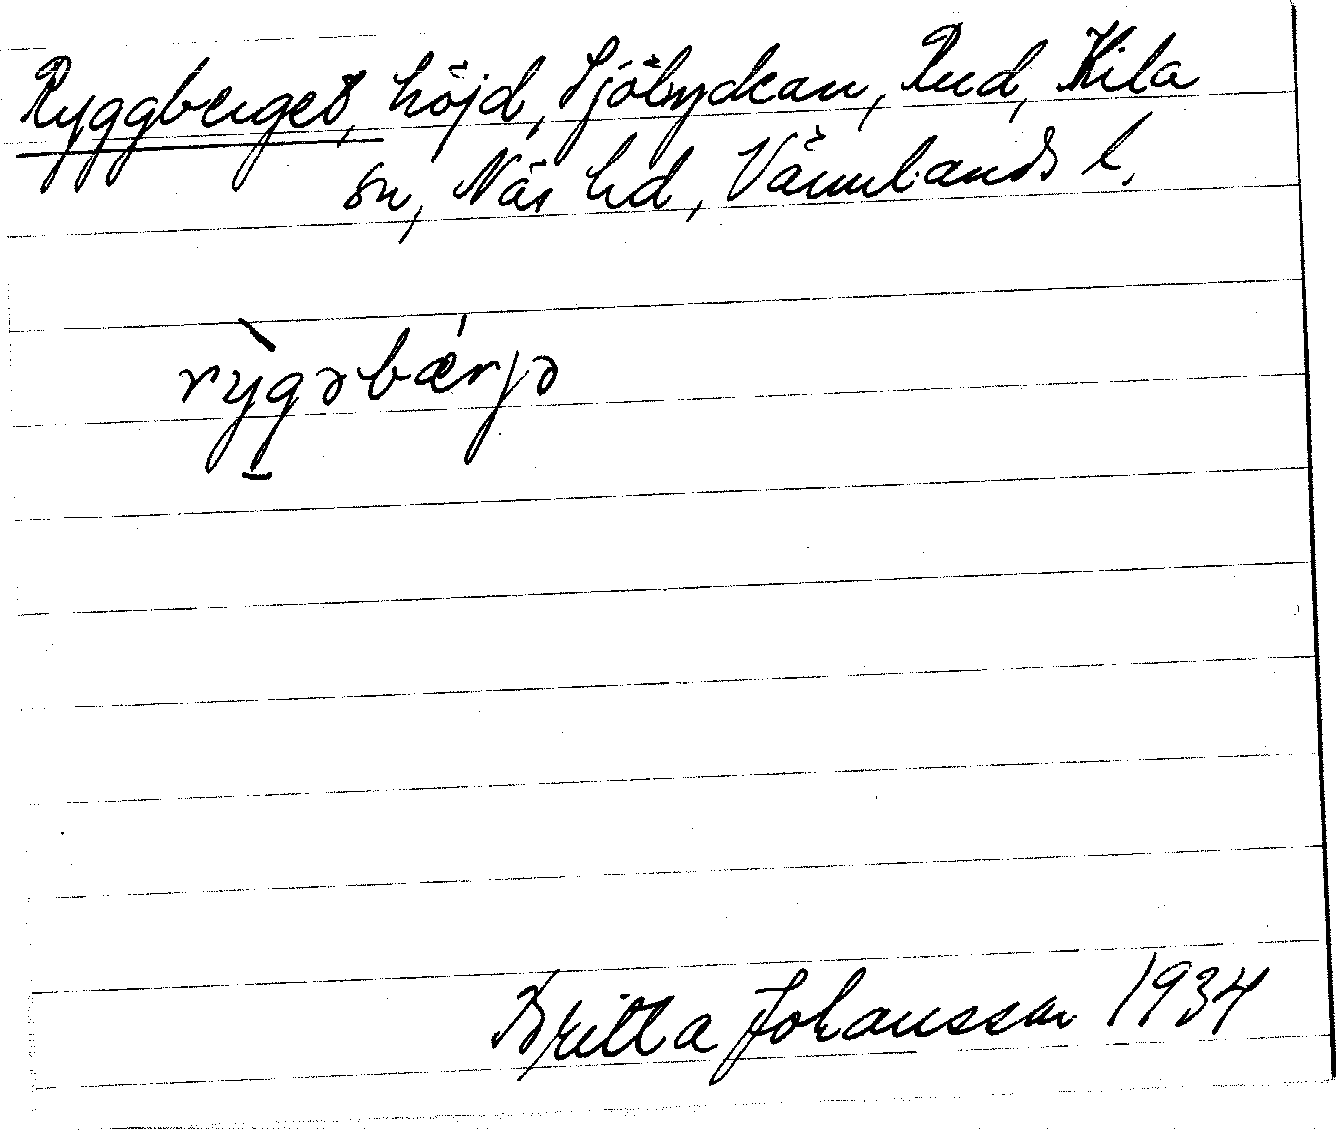 Ryggberget, höjd, Sjöbydcan, Rud, Kila
sn, Näs hd, Värmlands l.
rỳgəbǽrjə
Britta Johansson 1934